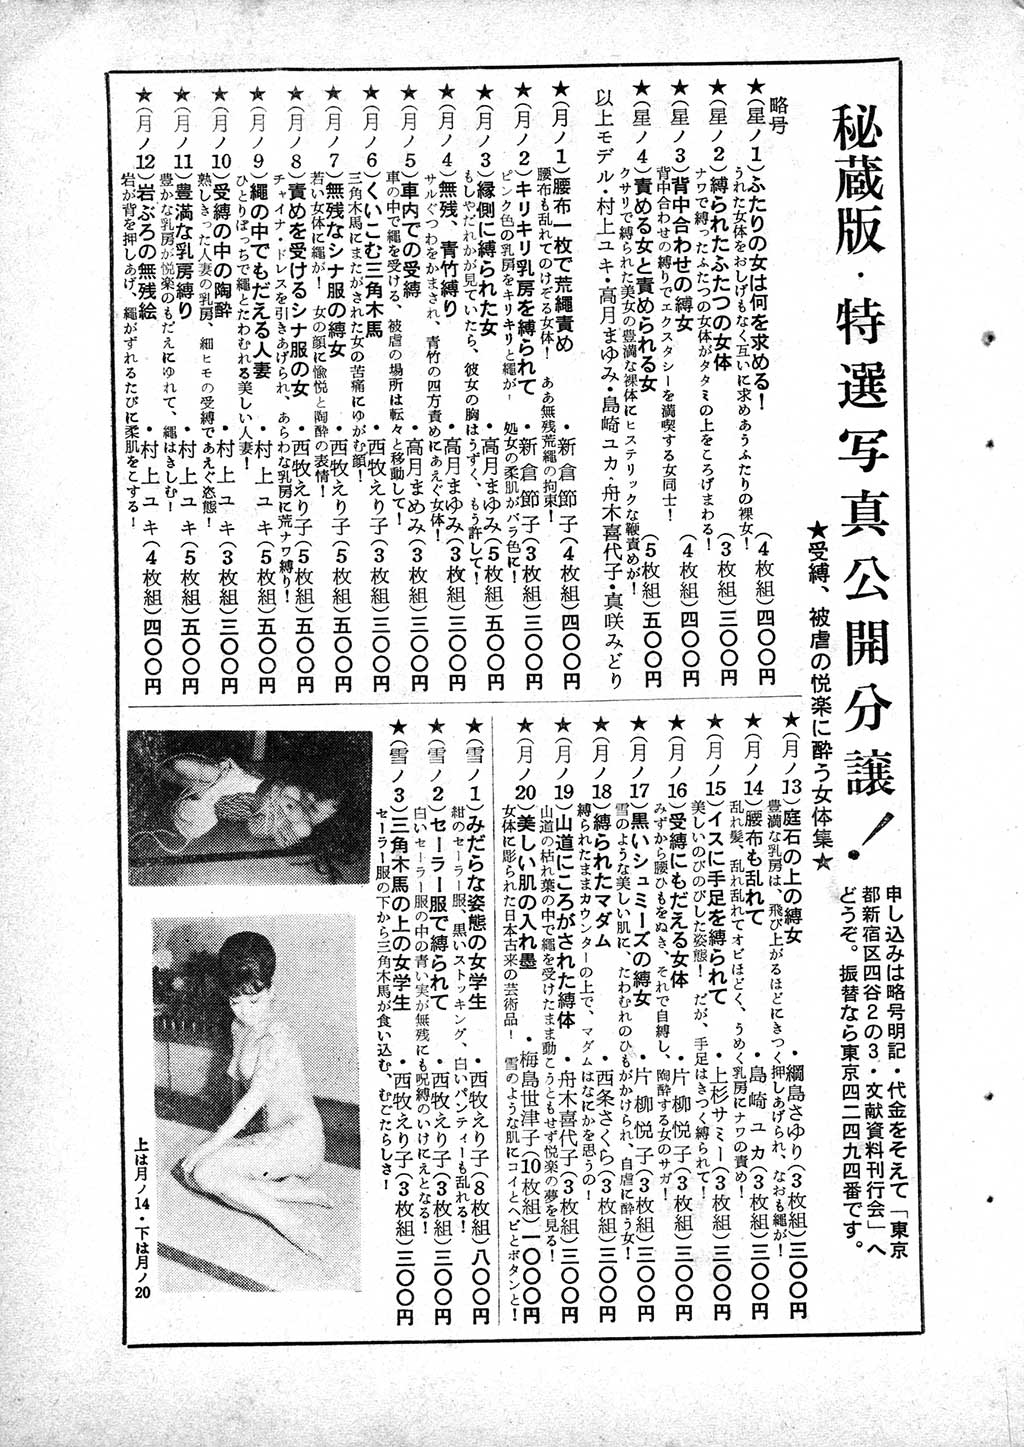 秘蔵版・特選写真公開分譲！
★受縛、被虐の悦楽に酔う女体集★
申し込みは略号明記・代金をそえて「東京
都新宿区四谷2の3・文献資料刊行会」へ
どうぞ。振替なら東京四二四九四番です。
略号
★（星ノ1）ふたりの女は何を求める！（4枚組）四〇〇円
うれた女体をおしげもなく互いに求めあうふたりの裸女！
★（星ノ2）縛られたふたつの女体（3枚組）三〇〇円
ナワで縛ったふたつの女体がタタミの上をころげまわる！
★（星ノ3）背中合わせの縛女（4枚組）四〇〇円
背中合わせの縛りでエクスタシーを満喫する女同士！
★（星ノ4）責める女と責められる女（5枚組）五〇〇円
クサリで縛られた美女の豊満な裸体にヒステリックな鞭責めが！
以上モデル・村上ユキ・高月まゆみ・島崎ユカ・舟木喜代子・真咲みどり
★（月ノ1）腰布一枚で荒縄責め・新倉節子（4枚組）四〇〇円
腰布も乱れてのけぞる女体！　ああ無残荒縄の拘束！
★（月ノ2）キリキリ乳房を縛られて・新倉節子（3枚組）三〇〇円
ピンク色の乳房をキリキリと縄が！　処女の柔肌がバラ色に！
★（月ノ3）縁側に縛られた女・高月まゆみ（5枚組）五〇〇円
もしやだれかが見ていたら、彼女の胸はうずく、もう許して！
★（月ノ4）無残、青竹縛り・高月まゆみ（3枚組）三〇〇円
サルぐつわをかまされ、青竹の四方責めにあえぐ女体！
★（月ノ5）車内での受縛・高月まめみ（3枚組）三〇〇円
車の中で縄を受ける、被虐の場所は転々と移動して！
★（月ノ6）くいこむ三角木馬・西牧えり子（3枚組）三〇〇円
三角木馬にまたがされた女の苦痛にゆがむ顔！
★（月ノ7）無残なシナ服の縛女・西牧えり子（5枚組）五〇〇円
若い女体に縄が！　女の顔に愉悦と陶酔の表情！
★（月ノ8）責めを受けるシナ服の女・西牧えり子（5枚組）五〇〇円
チャイナ・ドレスを引きあげられ、あらわな乳房に荒ナワ縛り！
★（月ノ9）縄の中でもだえる人妻・村上ユキ（5枚組）五〇〇円
ひとりぼっちで縄とたわむれる美しい人妻！
★（月ノ10）受縛の中の陶酔・村上ユキ（3枚組）三〇〇円
熟しきった人妻の乳房、細ヒモの受縛であえぐ姿態！
★（月ノ11）豊満な乳房縛り・村上ユキ（5枚組）五〇〇円
豊かな乳房が悦楽のもだえにゆれて、縄はきしむ！
★（月ノ12）岩ぶろの無残絵・村上ユキ（4枚組）四〇〇円
岩が背を押しあげ、縄がずれるたびに柔肌をこする！
★（月ノ13）庭石の上の縛女・綱島さゆり（3枚組）三〇〇円
豊満な乳房は、飛び上がるほどにきつく押しあげられ、なおも縄が！
★（月ノ14）腰布も乱れて・島崎ユカ（3枚組）三〇〇円
乱れ髪、乱れ乱れてオビほどく、うめく乳房にナワの責め！
★（月ノ15）イスに手足を縛られて・上杉サミー（3枚組）三〇〇円
美しいのびのびした姿態！　だが、手足はきつく縛られて！
★（月ノ16）受縛にもだえる女体・片柳悦子（3枚組）三〇〇円
みずから腰ひもをぬき、それで自縛し、陶酔する女のサガ！
★（月ノ17）黒いシュミーズの縛女・片柳悦子（3枚組）三〇〇円
雪のような美しい肌に、たわむれのひもがかけられ、自虐に酔う女！
★（月ノ18）縛られたマダム・西条さくら（3枚組）三〇〇円
縛られたままカウンターの上で、マダムはなにかを思うの！
★（月ノ19）山道にころがされた縛体・舟木喜代子（3枚組）三〇〇円
山道の枯れ葉の中で縄を受けたまま動こうともせず悦楽の夢を見る！
★（月ノ20）美しい肌の入れ墨・梅島世津子（10枚組）一〇〇〇円
女体に彫られた日本古来の芸術品！　雪のような肌にコイとヘビとボタンと！
上は月ノ14・下は月ノ20